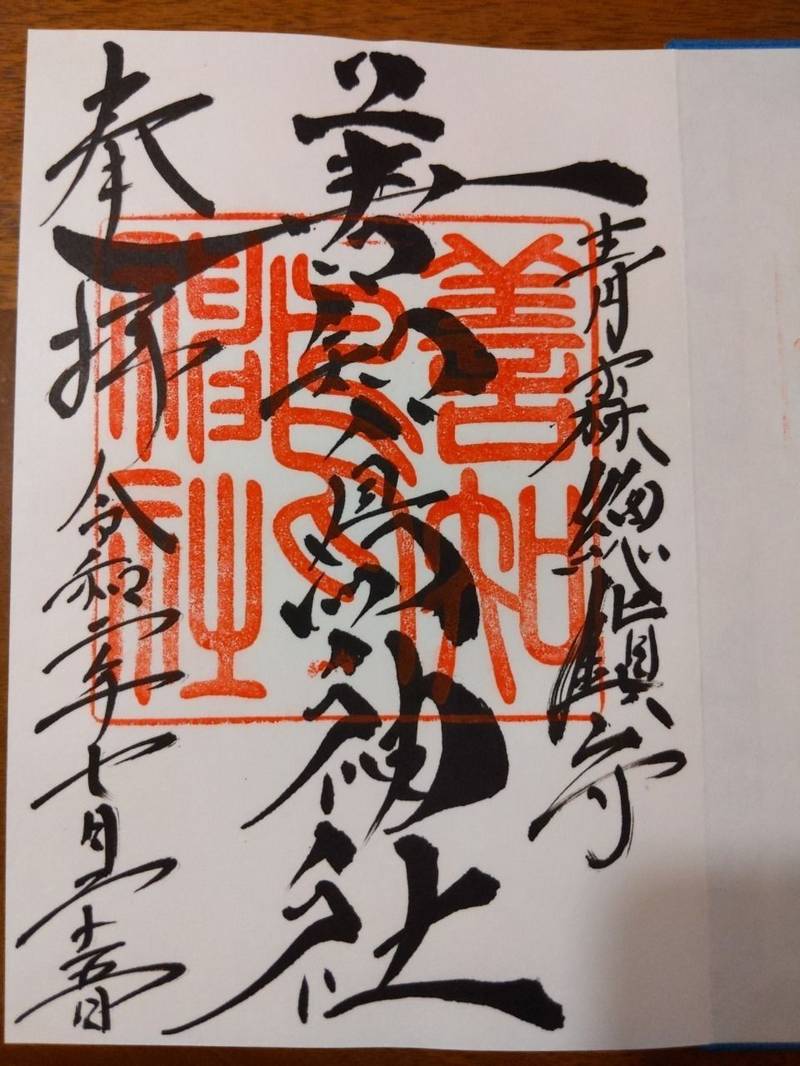 青森總鎮守
善知鳥神社
奉拝
令和二年七月二十五日
善知
鳥
神社